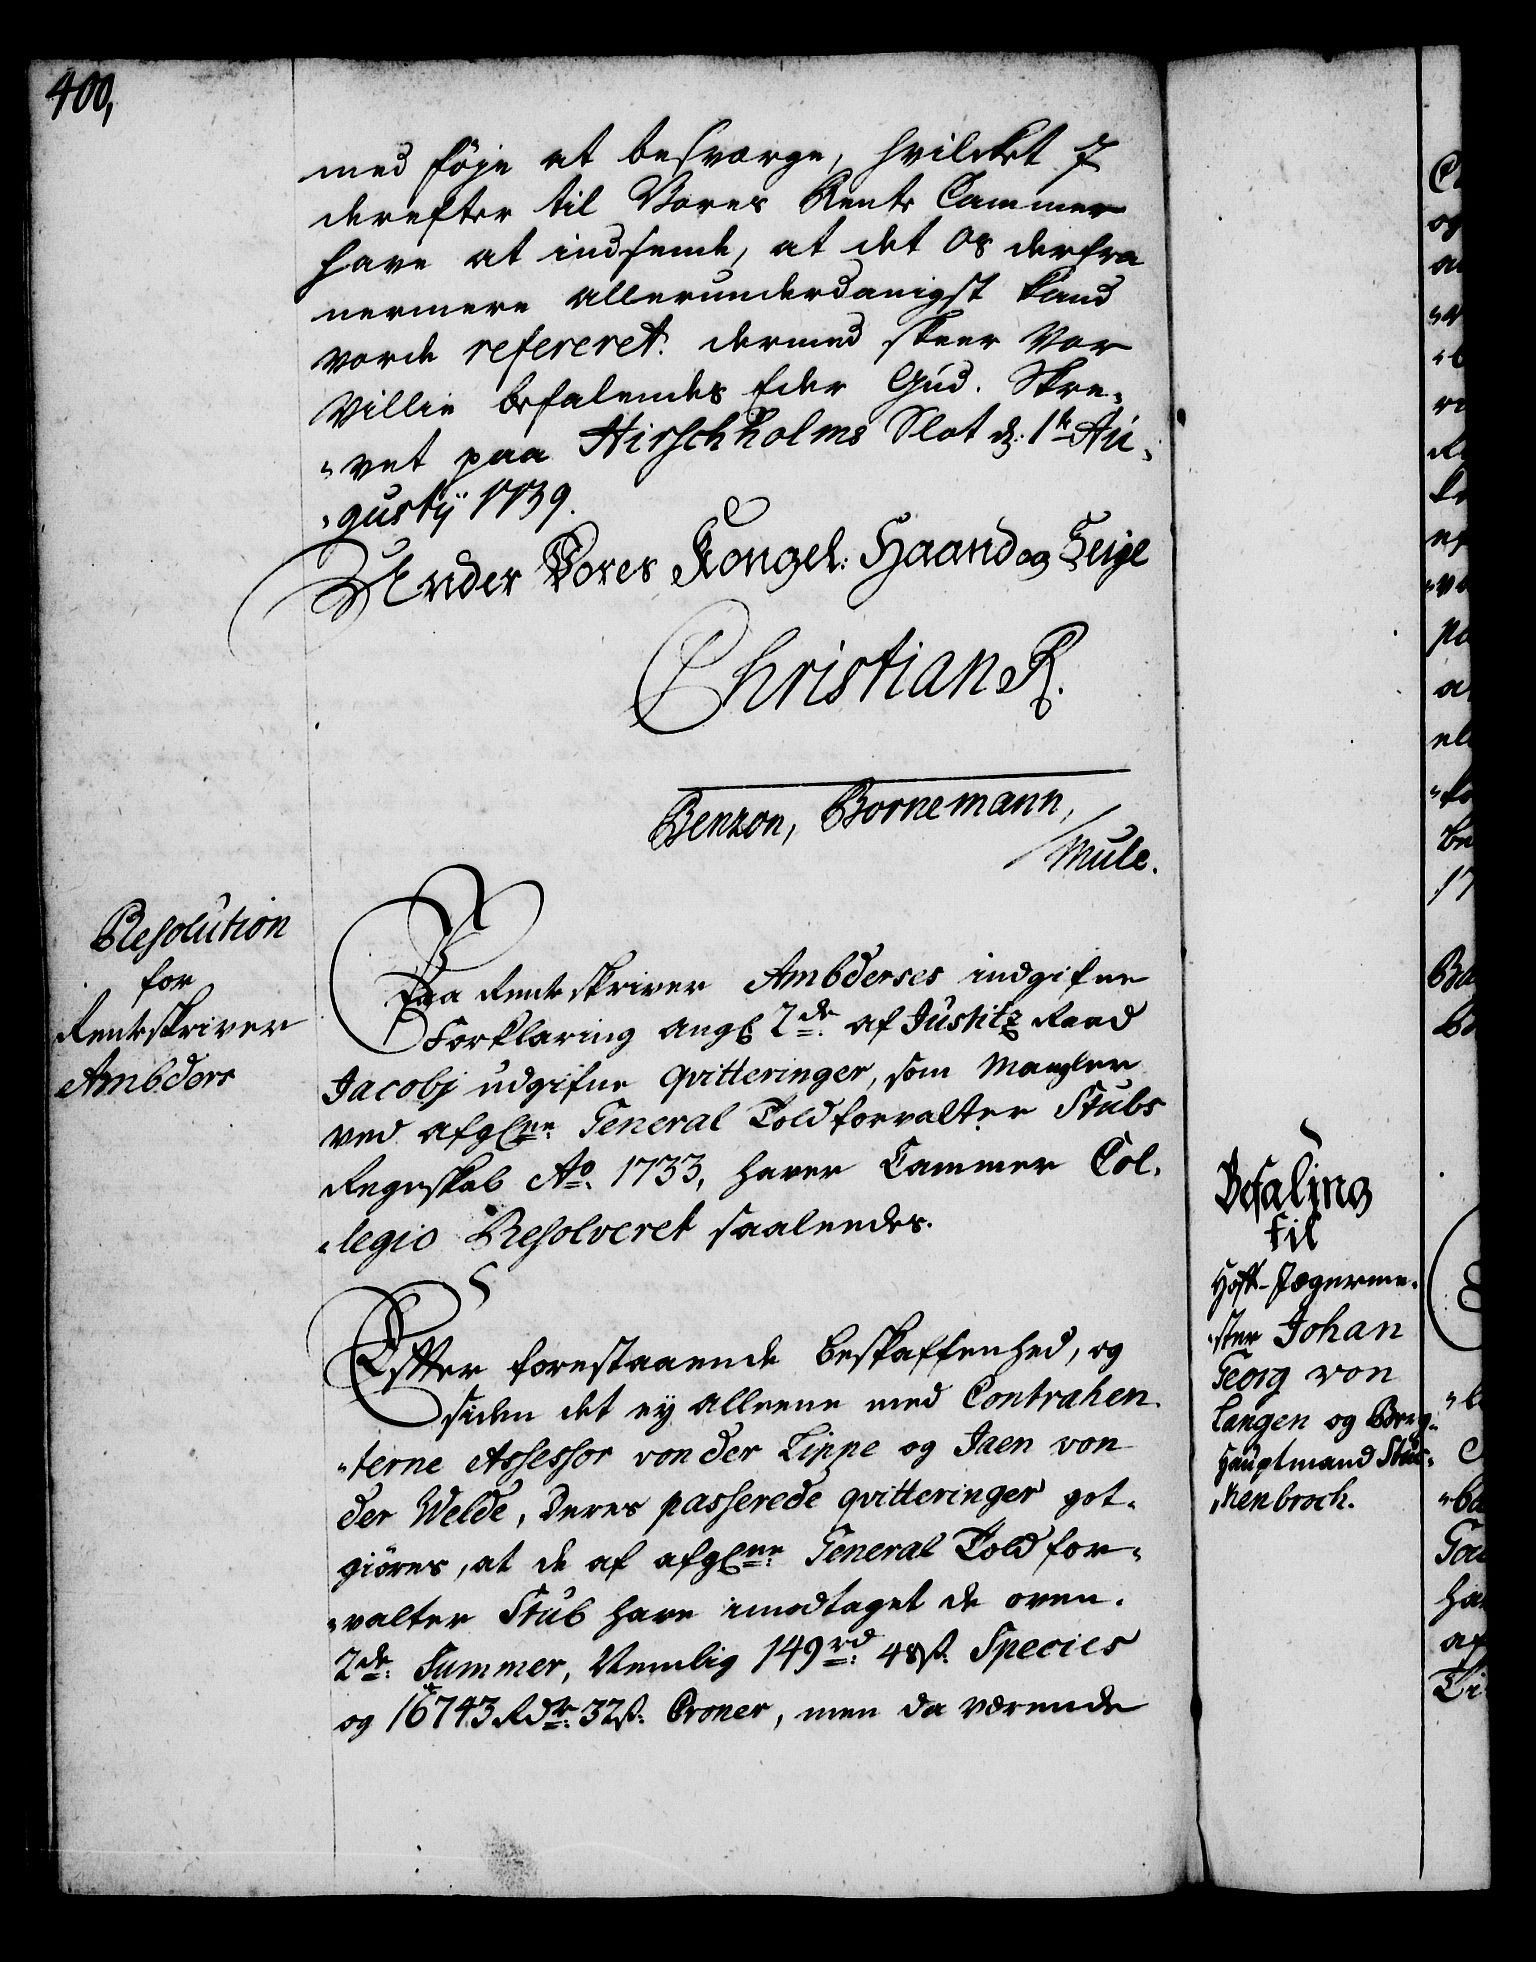 400,
med föje at besværge, hvilcket I
derefter til Vores Rente Cammer
have at indsende, at det Os derfra
nermere allerunderdanigst kand
vorde refereret. dermed skeer Vor
Villie befalendes Eder Gud. Skre„
„vet paa Hirschholms Slot d: 1te Au„
„gustij 1739.
Under Vores Kongel: Haand og Seigl
Christian R.
Benzon, Bornemann,
/Mule.
Resolution
for
Rentskriver
Ambders
Paa Rentskriver Ambderses indgifne
Forklaring ang: 2de af Justitz Raad
Jacobj udgifne qvitteringer, som Mangler
ved afgl:ne General Toldforvalter Stubs
Regnskab Ao. 1733, haver Cammer Col„
„legio Resolveret saaledes.
Efter forestaaende beskaffenhed, og
siden det ey alleene med Contrahen„
„terne Assessor von der Lippe og Jaen von
der Welde, deres passerede qvitteringer got„
giöres, at de af afgl:ne General Toldfor„
„valter Stub have imodtaget de oven.
2de Summer, Nemlig 149 rd: 48 ß. Species
og 16743 Rdr: 32 ß. Croner, men da værende
Befaling
til
Hoff-Jægerme„
„ster Johan
Georg von
Langen og Berg„
Hauptmand Stuc„
„kenbroch.